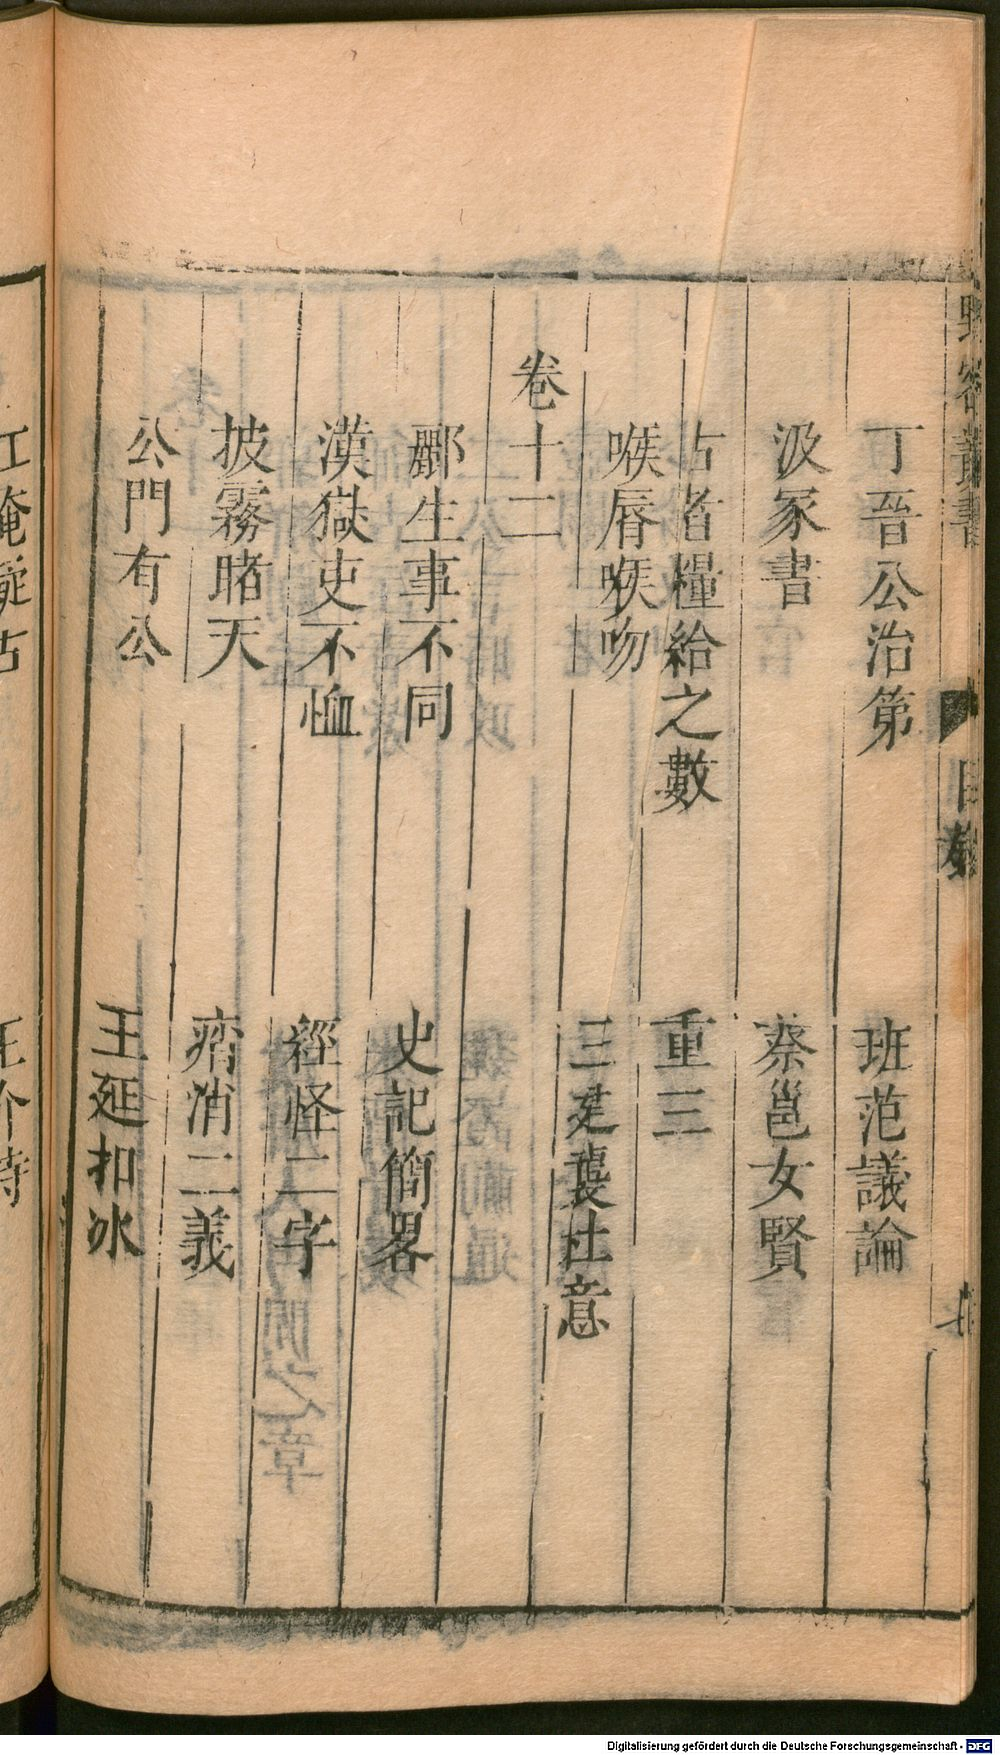 野客叢書
目錄
丁晉公治第
班范議論
汲冢書
蔡邕女賢
古者糧給之數
重三
喉脣喉吻
三建襲杜意
卷十二
酈生事不同
史記簡畧
漢獄吏不恤
經怪二字
披霧睹天
痟消二義
公門有公
王延扣冰
江淹擬古
Digitalisierung gefördert durch die Deutsche Forschungsgemeinschaft - DFG